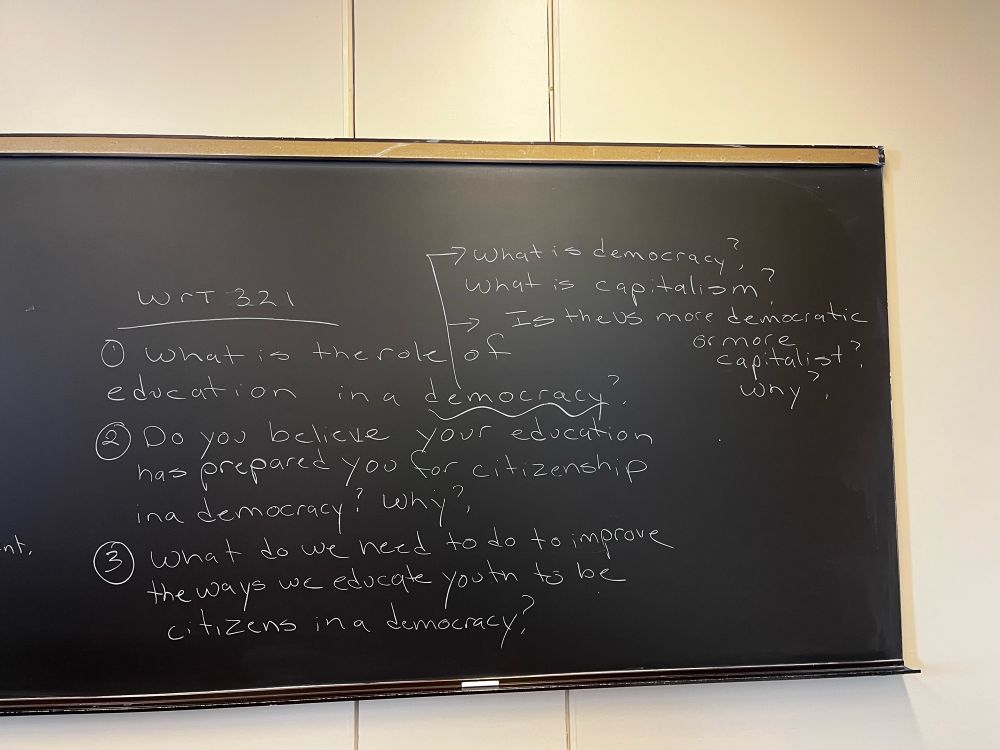 WrT 321
① What is the role of
education in a democracy?
→ What is democracy?
What is capitalism?
→ Is the US more democratic
or more
capitalist?
Why?
② Do you believe your education
has prepared you for citizenship
in a democracy? Why?
③ What do we need to do to improve
the ways we educate youth to be
citizens in a democracy?
nt.